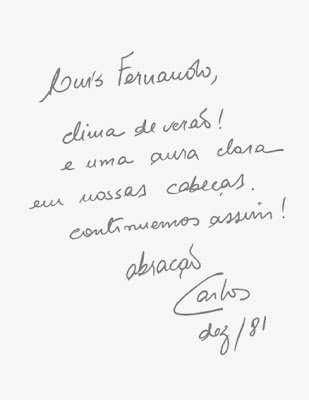 Luís Fernando,
clima de verão!
e uma aura clara
em nossas cabeças.
continuemos assim!
abração
Carlos
dez/81